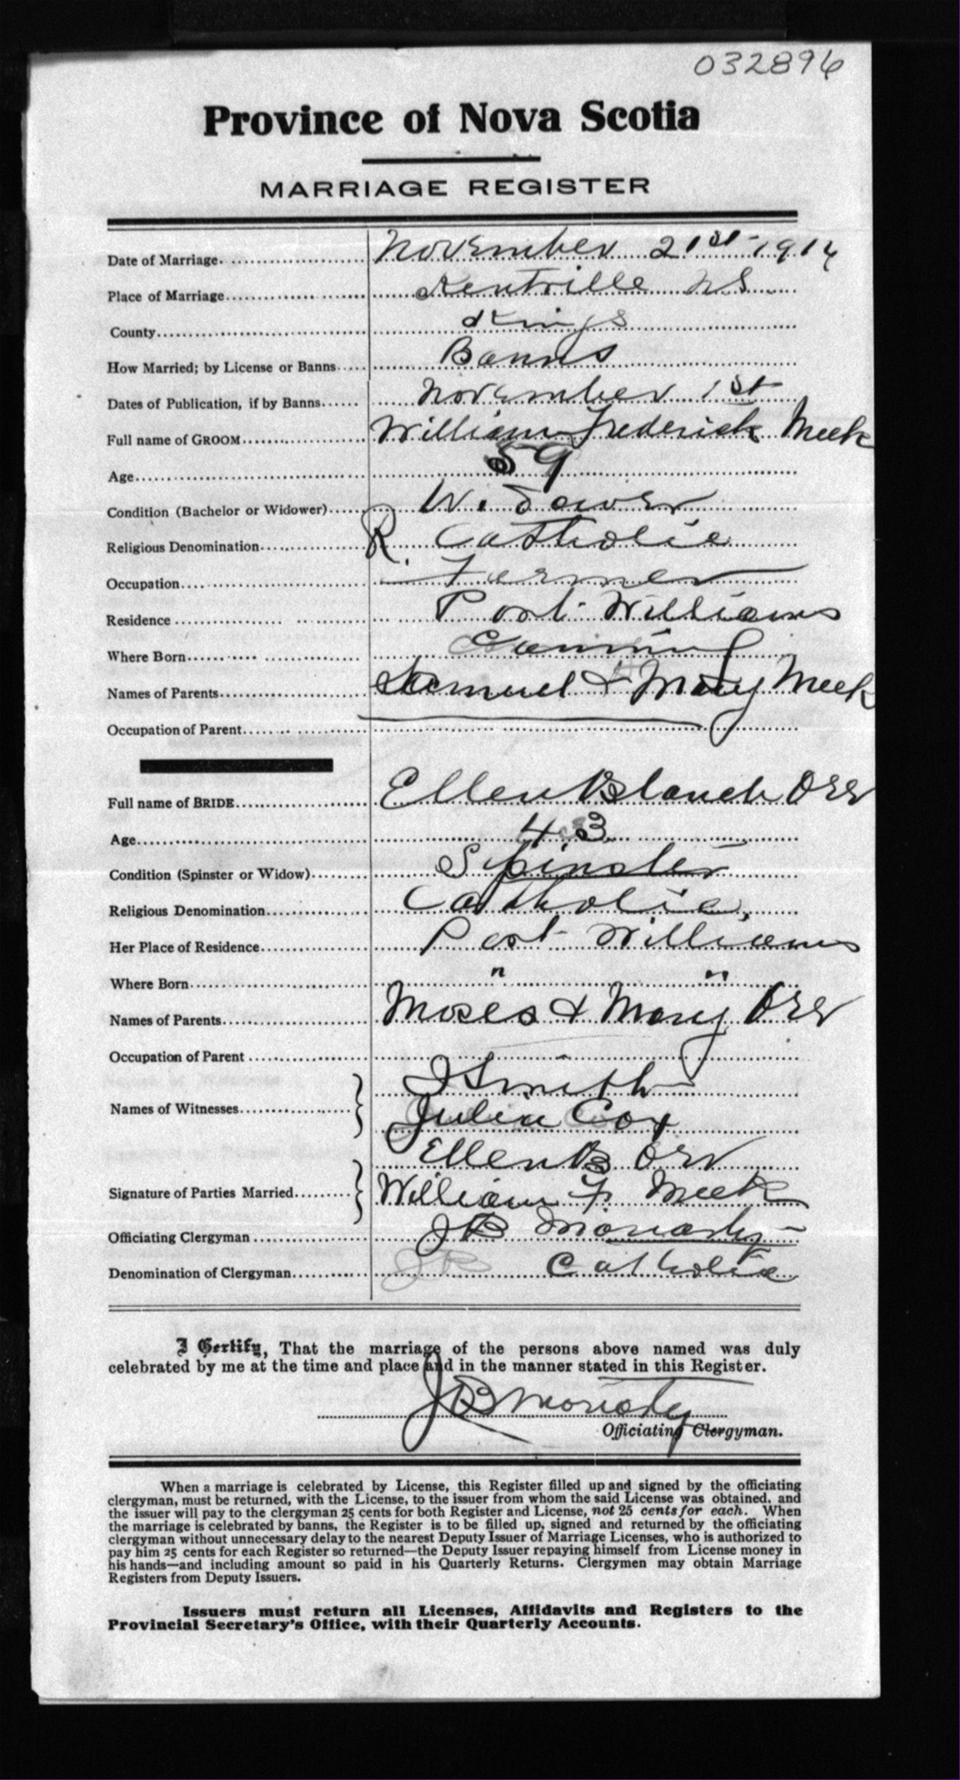 032896
Province of Nova Scotia
MARRIAGE REGISTER
Date of Marriage. November 21st 1914
Place of Marriage Kentville N S
County Kings
How Married; by License or Banns Banns
Dates of Publication, if by Banns. November 1st
Full name of GROOM William Frederick Meek
Age 59
Condition (Bachelor or Widower) Widower
Religious Denomination R. Catholic
Occupation Farmer
Residence Port Williams
Where Born Canning
Names of Parents Samuel & Mary Meek
Occupation of Parent
Full name of BRIDE Ellen Blanch Orr
Age 43
Condition (Spinster or Widow) Spinster
Religious Denomination Catholic
Her Place of Residence Port Williams
Where Born " "
Names of Parents Moses & Mary Orr
Occupation of Parent
J Smith
Names of Witnesses Julia Cox
Ellen B Orr
Signature of Parties Married William F. Meek
Officiating Clergyman J B Moriarty
Denomination of Clergyman Catholic
I Certify, That the marriage of the persons above named was duly
celebrated by me at the time and place and in the manner stated in this Register.
J B Moriarty
Officiating Clergyman.
When a marriage is celebrated by License, this Register filled up and signed by the officiating
clergyman, must be returned, with the License, to the issuer from whom the said License was obtained, and
the issuer will pay to the clergyman 25 cents for both Register and License, not 25 cents for each. When
the marriage is celebrated by banns, the Register is to be filled up, signed and returned by the officiating
clergyman without unnecessary delay to the nearest Deputy Issuer of Marriage Licenses, who is authorized to
pay him 25 cents for each Register so returned—the Deputy Issuer repaying himself from License money in
his hands—and including amount so paid in his Quarterly Returns. Clergymen may obtain Marriage
Registers from Deputy Issuers.
Issuers must return all Licenses, Affidavits and Registers to the
Provincial Secretary's Office, with their Quarterly Accounts.